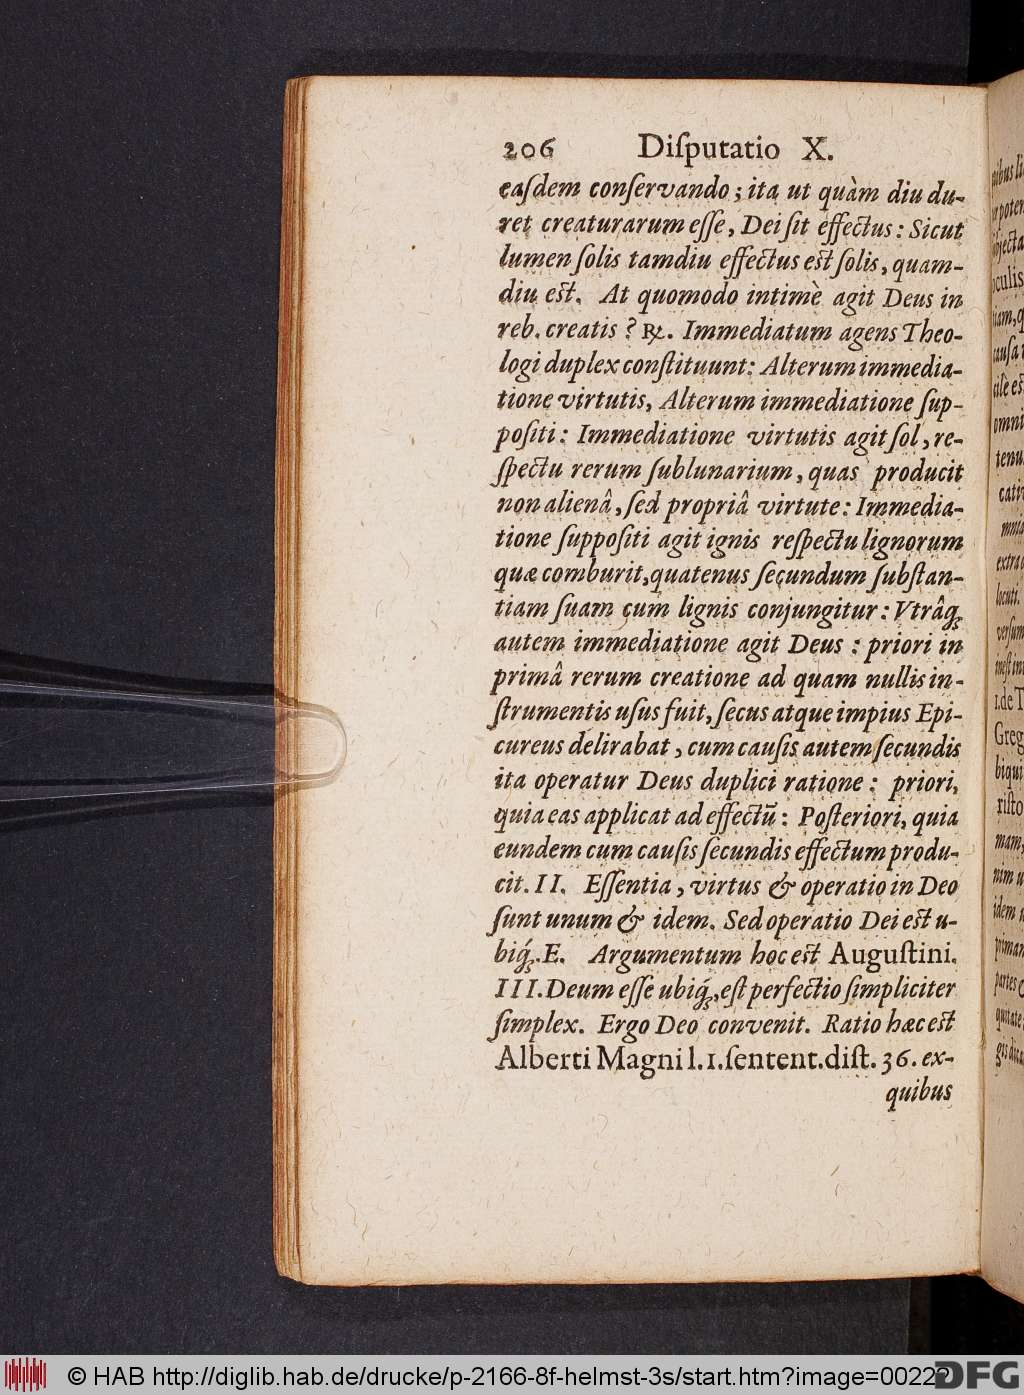 206 Diſputatio X.
eaſdem conſervando; ita ut quàm diu du-
ret creaturarum eſſe, Dei ſit effectus: Sicut
lumen ſolis tamdiu effectus eſt ſolis, quam-
diu eſt. At quomodo intimè agit Deus in
reb. creatis? ℞. Immediatum agens Theo-
logi duplex conſtituunt: Alterum immedia-
tione virtutis, Alterum immediatione ſup-
poſiti: Immediatione virtutis agit ſol, re-
ſpectu rerum ſublunarium, quas producit
non alienâ, ſed propriâ virtute: Immedia-
tione ſuppoſiti agit ignis reſpectu lignorum
quæ comburit, quatenus ſecundum ſubſtan-
tiam ſuam cum lignis conjungitur: Vtrâq́;
autem immediatione agit Deus: priori in
primâ rerum creatione ad quam nullis in-
ſtrumentis uſus fuit, ſecus atque impius Epi-
cureus delirabat, cum cauſis autem ſecundis
ita operatur Deus duplici ratione: priori,
quia eas applicat ad effectū: Poſteriori, quia
eundem cum cauſis ſecundis effectum produ-
cit. II. Eſſentia, virtus & operatio in Deo
ſunt unum & idem. Sed operatio Dei eſt u-
biq́;. E. Argumentum hoc eſt Auguſtini.
III. Deum eſſe ubiq́;, eſt perfectio ſimpliciter
ſimplex. Ergo Deo convenit. Ratio hæc eſt
Alberti Magni l. 1. ſentent. diſt. 36. ex-
quibus
© HAB http://diglib.hab.de/drucke/p-2166-8f-helmst-3s/start.htm?image=00222
DFG
hab